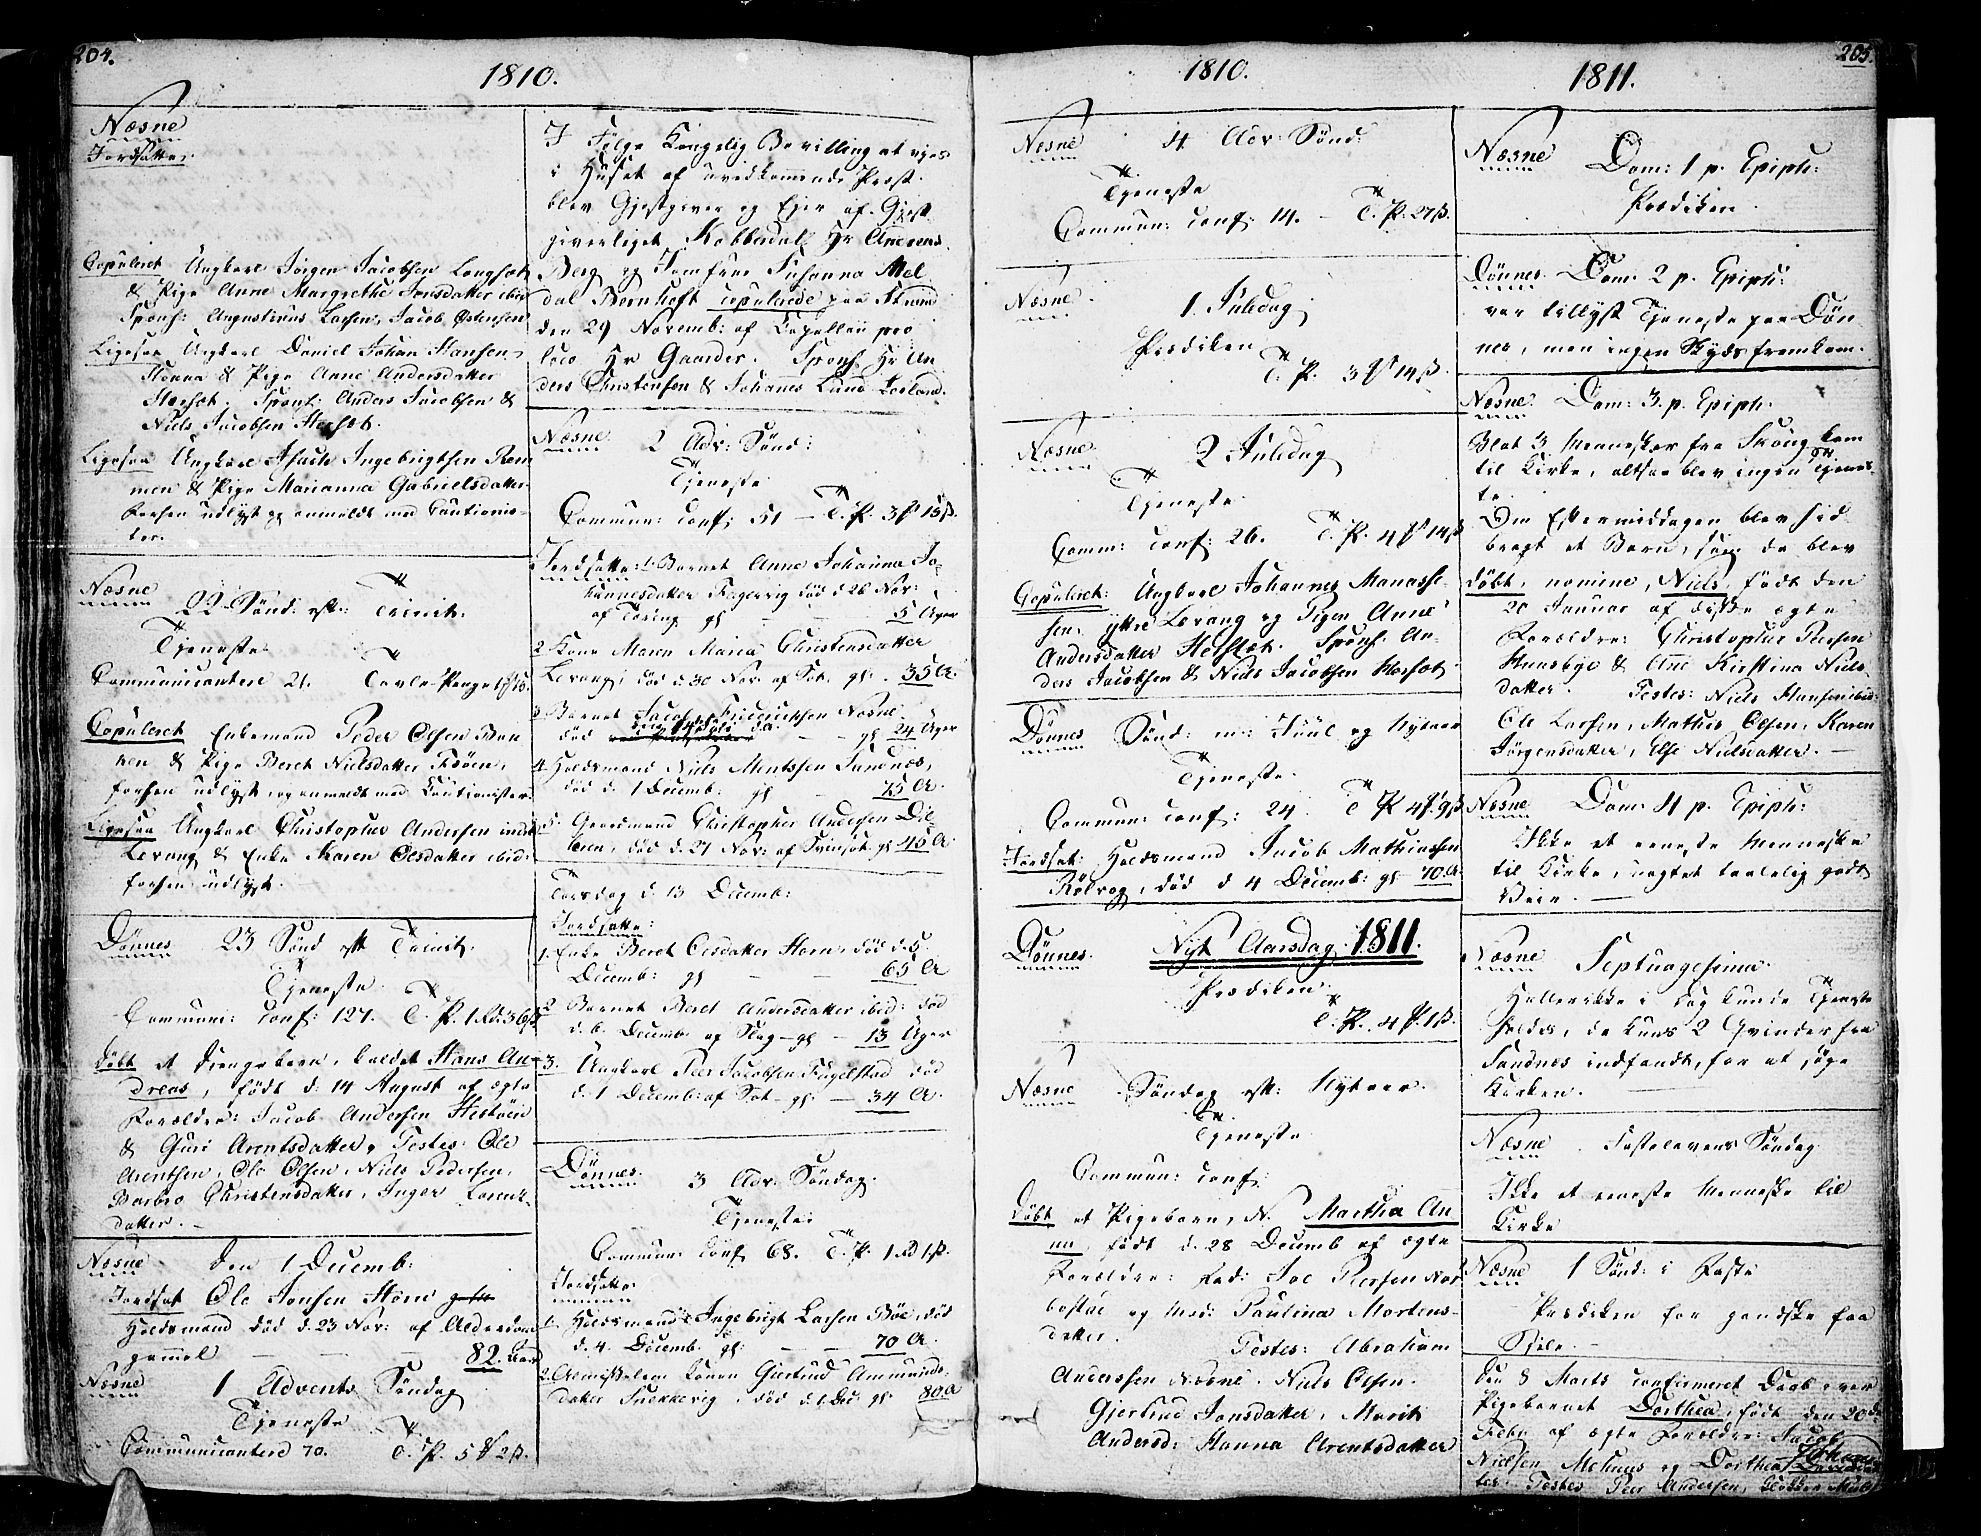 204.
1810.
Næsne
Jordsatte:
Copuleret Ungkarl Jörgen Jacobsen Langset
& Pige Anne Margrethe Jonsdatter ibid
Spons: Augustinus Larsen, Jacob Østensen
Ligesaa Ungkarl Daniel Johan Hansen
& Pige Anne Andersdatter
Spons: Anders Jacobsen &
Niels Jacobsen Hersæt.
Ligesaa Ungkarl Isach Ingebrigtsen Rem
men & Pige Marianna Gabrielsdatter
forhen udlyst og anmeldt med Cautionis-
ter.
Næsne
22 Sönd: eft: Trinit:
Tjeneste
Communicantere 21. Tavle-Penge
Copuleret Enkemand Peder Olsen
& Pige Beret Nielsdatter
forhen udlyst, og anmeldt med Cautionister.
Ligesaa Ungkarl Christopher Andersen indre
Levang & Enke Maren Olsdatter ibid:
forhen udlyst.
Dönnes 23 Sönd eft Trinit:
Tjeneste
Communi: Conf: 127. T. P. 1 Rd. 36 ß
Döbt et Drengebarn, kaldet Hans An-
dreas, født d: 14 August af ægte
Forældre: Jacob Andersen
& Guri Arentsdatter, Testes: Ole
Arentsen, Ole Olsen, Niels Pedersen,
Barbro Christensdatter, Inger Lorentz-
datter.
Næsne den 1 Decemb:
Jordsat Ole Jonsen Horn
Huusmand død d. 23 Nov: af Alderdom
gammel 82. Aar
Næsne 1 Advents Söndag
Tjeneste
Communicantere 70. T. P. 5 ß
I Følge Kongelig Bevilling at vies
i Huset af uvedkommende Præst
blev Gjestgiver og Ejer af Gjest
giverliget Kobberdal Hr
Berg og Jomfrue Susanna Mel
dal Bernhoft copulerede paa Strand
den 29 Novemb: af Capellan pro
loco Hr Gaarder. Spons Hr An
ders Christensen & Johannes Lund
Næsne 2 Adv: Sönd:
Tjeneste
Commun: Conf: 51 — T. P. 3 15 ß.
Jordsatte: 1. Barnet Anne Johanna Jo-
hannesdatter død d 26 Nov:
5 Uger
2 Kone Maren Maria Christensdatter
Levang, død d. 30 Nov. af Sot. gl. 35 A.
3 Barnet Jacob Fridrichsen Næsne
død gl 24 Uger
4. Niels Mentzsen Sandnæs,
død d. 1 Decemb: gl 75 A.
5. Christopher Andersen
død d. 27 Nov: gl 45 A
Torsdag d. 13 Decemb:
Jordsatte:
1. Enke Beret Olsdatter Horn, død d. 5
Decemb: gl 65 A
2 Barnet Beret Andersdatter ibid: død
d. 6 Decemb af Slag gl — 13 Uger
3. Ungkarl Peer Jacobsen Fuglestad død
d. 1 Decemb: af Sot gl — 34 A.
Dönnes 3 Adv: Söndag.
Tjeneste
Commun: Conf 68. T. P. 1 Rd 1 ß.
Jordsatte
1. Ingebrigt Larsen Böe, død
d. 4. Decemb. gl: 70 A.
2. Konen Giertrud Ammunds-
datter død d. 1 Dec gl 80 A
205.
1810. 1811.
Næsne 4 Adv: Sönd:
Tjeneste
Commun: Conf: 14. — T. P: 27 ß.
Næsne 1 Juledag
Prædiken
T. P. 3 14 ß.
Næsne 2 Juledag
Tjeneste
Comm: Conf: 26. T. P. 4 14 ß
Copuleret: Ungkarl Johannes Manasse-
sen, yttre Levang og Pigen Anne
Andersdatter Hersæt. Spons: An-
ders Jacobsen & Niels Jacobsen Hersæt
Dönnes Sönd: m: Juul og Nytaar
Tjeneste
Commun: Conf: 24 T P. 4 9 ß
Jordsat: Jacob Mathiassen
Rölvog, død d 4 Decemb: gl 70. A.
Dönnes. Nyt Aarsdag 1811.
Prædiken
T. P. 4 1 ß.
Næsne Söndag eft: Nytaar.
Tjeneste
Commun: Conf:
Döbt et Pigebarn, N. Martha An
na, født d. 28 Decemb af ægte
Forældre: Fad: Joe Peersen Nor
og Mod: Paulina Mortens-
datter. Testes: Abraham
Anderssen Næsne. Niels Olsen.
Gjertrud Jonsdatter, Marit
Andersd: Hanna Arentsdatter
Næsne Dom: 1 p. Epiph:
Prædiken.
Dönnes Dom: 2 p. Epiph:
var tillyst Tjeneste paa Dön
nes, men ingen Skyds fremkom.
Næsne. Dom: 3. p. Epiph:
Blot 3 Mennesker fra Skoug kom
til Kirke, altsaa blev ingen Tjenes-
te.
Om Eftermiddagen blev hid
bragt et Barn, som da blev
döbt, nomine, Niels, født den
20 Januar af ægte
Forældre: Christopher Peersen
& Ane Kirstina Niels
datter. Testes: Niels Hansen ibid:
Ole Larsen, Mathis Olsen, Karen
Jörgensdatter, Else Nielsdatter. —
Næsne Dom: 4 p. Epiph:
Ikke et eneste Menneske
til Kirke, uagtet taalelig godt
Veir. —
Næsne Septuagesima.
Hellerikke i Dag kunde Tjeneste
holdes, da kuns 2 Qvinder fra
Sandnes indfandt, for at søge
Kirken.
Næsne. Fastelavens Söndag
Ikke et eneste Menneske til
Kirke
Næsne 1 Sönd: i Faste
Prædiken for gandske faa
Sjele.
Den 8 Marts Confirmeret Daab over
Pigebarnet Dorthea, født den 20de
Feby af ægte Forældre: Jacob
Nielsen og Dorthea
Testes Peer Andersen,